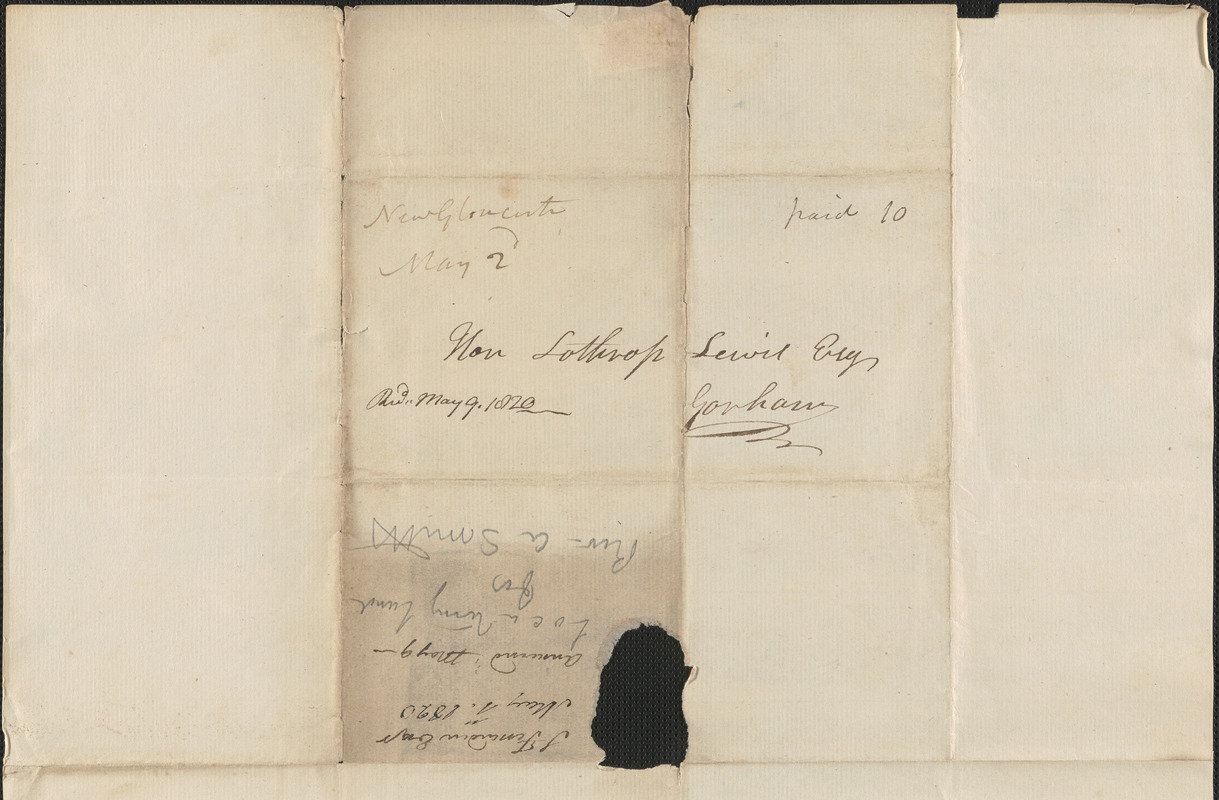 New Gloucester
May 2d
paid 10
Hon Lothrop Lewis Esq
Gorham
Recd. May 9. 1820
May 1. 1820
answered May 9
Locating Land
for
Rev a Smith